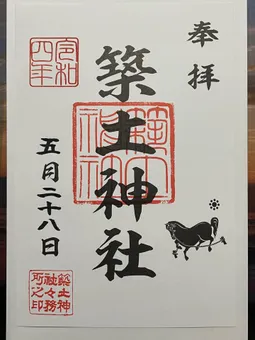 奉拝
築土神社
令和四年
五月二十八日
築土神社
築土神社々務所之印